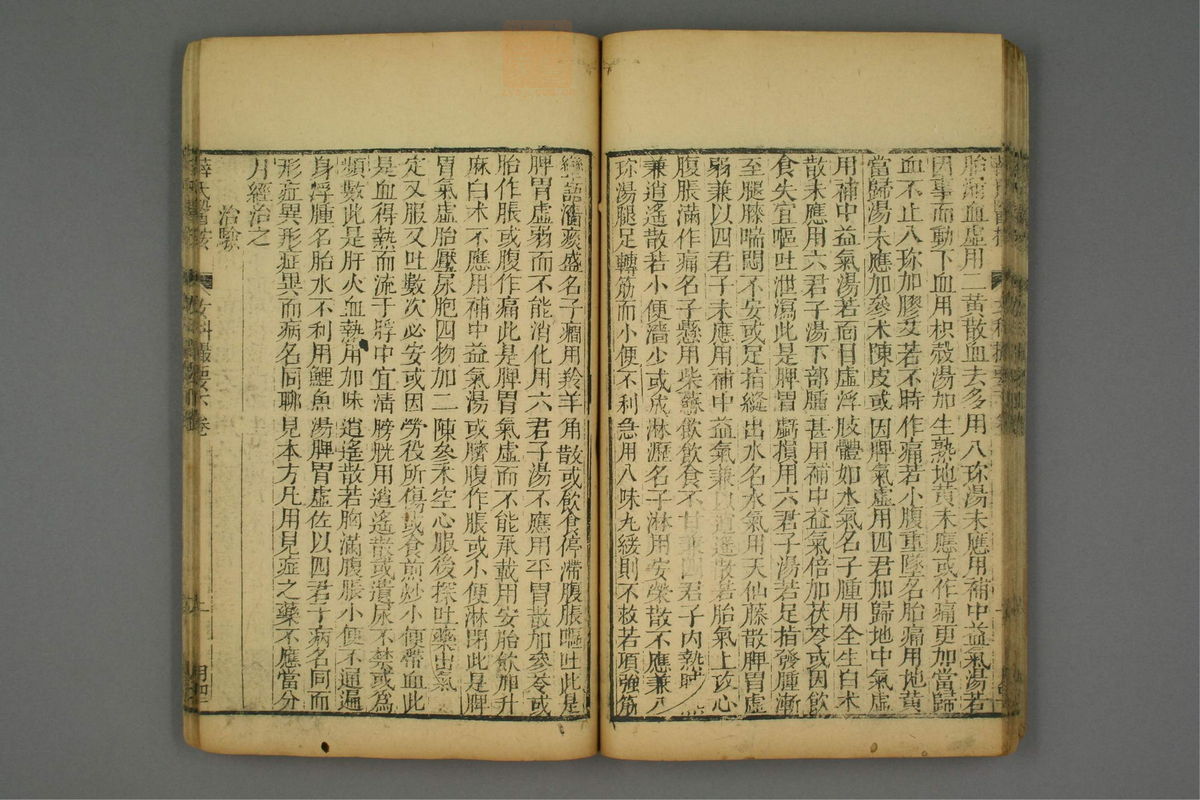 胎漏血虛用二黃散血去多用八珎湯未應用補中益氣湯若
因事而動下血用枳殼湯加生熟地黃未應或作痛更加當歸
血不止八珎加膠艾若不時作痛若小腹重墜名胎痛用地黃
當歸湯未應加參术陳皮或因脾氣虛用四君加歸地中氣虛
用補中益氣湯若面目虛浮肢體如水氣名子腫用全生白术
散未應用六君子湯下部腫甚用補中益氣倍加茯苓或因飲
食失宜嘔吐泄瀉此是脾胃虧損用六君子湯若足指發腫漸
至腿膝喘悶不安或足指縫出水名水氣用天仙藤散脾胃虛
弱兼以四君子未應用補中益氣兼以逍遙散若胎氣上攻心
腹脹滿作痛名子懸用柴蘇飲飲食不甘兼四君子內熱晡
兼逍遙散若小便濇少或成淋瀝名子淋用安榮散不應兼八
珎湯腿足轉筋而小便不利急用八味丸緩則不救若項強筋
攣語濇痰盛名子癎用羚羊角散或飲食停滯腹脹嘔吐此是
脾胃虛弱而不能消化用六君子湯不應用平胃散加參苓或
胎作脹或腹作痛此是脾胃氣虛而不能承載用安胎飲加升
麻白术不應用補中益氣湯或臍腹作脹或小便淋閉此是脾
胃氣虛胎壓尿胞四物加二陳參术空心服後探吐藥出氣
定又服又吐數次必安或因勞役所傷或食煎炒小便帶血此
是血得熱而流于脬中宜清膀胱用逍遙散或遺尿不禁或爲
頻數此是肝火血熱用加味逍遙散若胸滿腹脹小便不通遍
身浮腫名胎水不利用鯉魚湯脾胃虛佐以四君子病名同而
形症異形症異而病名同聊見本方凡用見症之藥不應當分
月經治之
治驗
薛氏醫按
女科撮要 卷